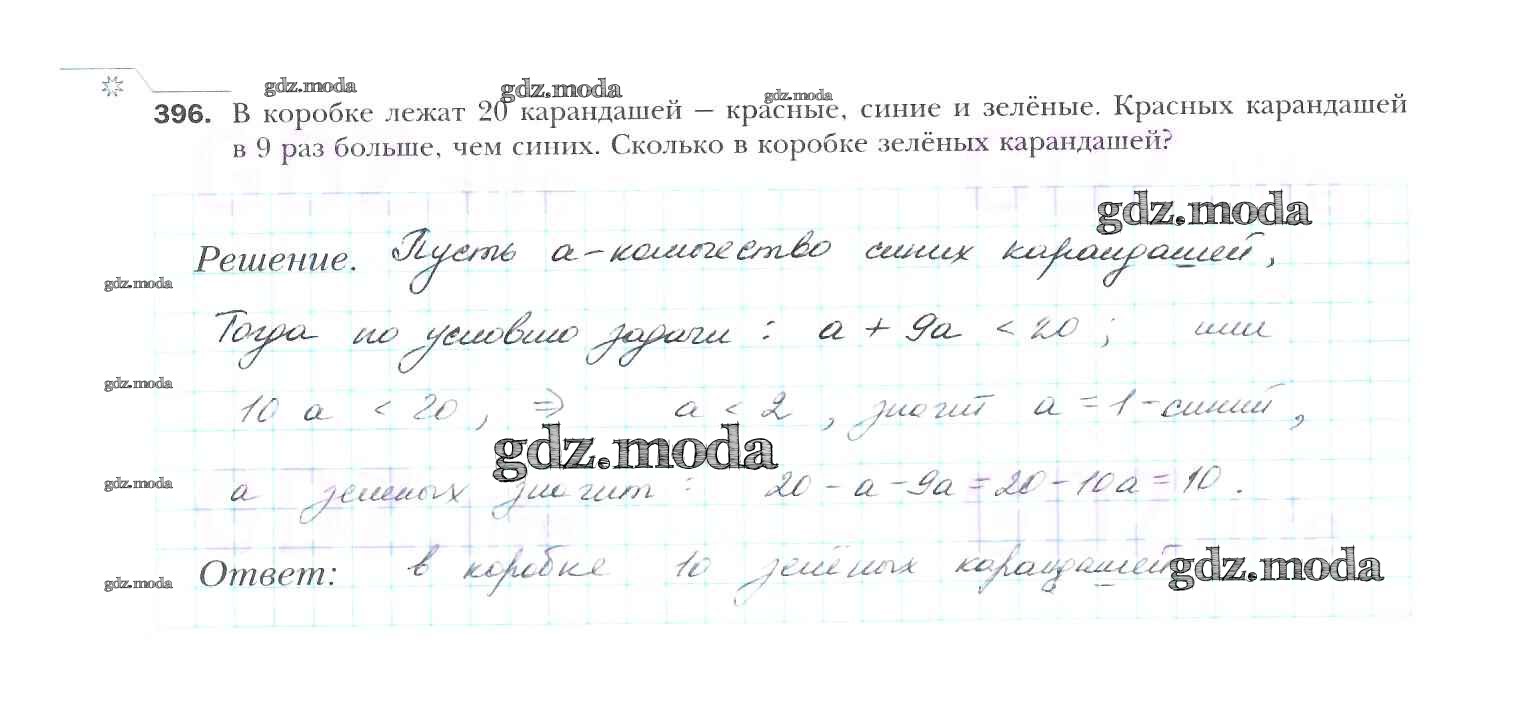 gdz.moda gdz.moda gdz.moda
396. В коробке лежат 20 карандашей – красные, синие и зелёные. Красных карандашей
в 9 раз больше, чем синих. Сколько в коробке зелёных карандашей?
gdz.moda
Решение. Пусть а - количество синих карандашей,
gdz.moda
Тогда по условию задачи : а + 9а < 20 ; или
gdz.moda
10 а < 20 , ⇒ а < 2 , значит а = 1 - синий ,
gdz.moda
gdz.moda
а зеленых значит : 20 - а - 9а = 20 - 10а = 10 .
Ответ: в коробке 10 зелёных карандашей
gdz.moda
gdz.moda